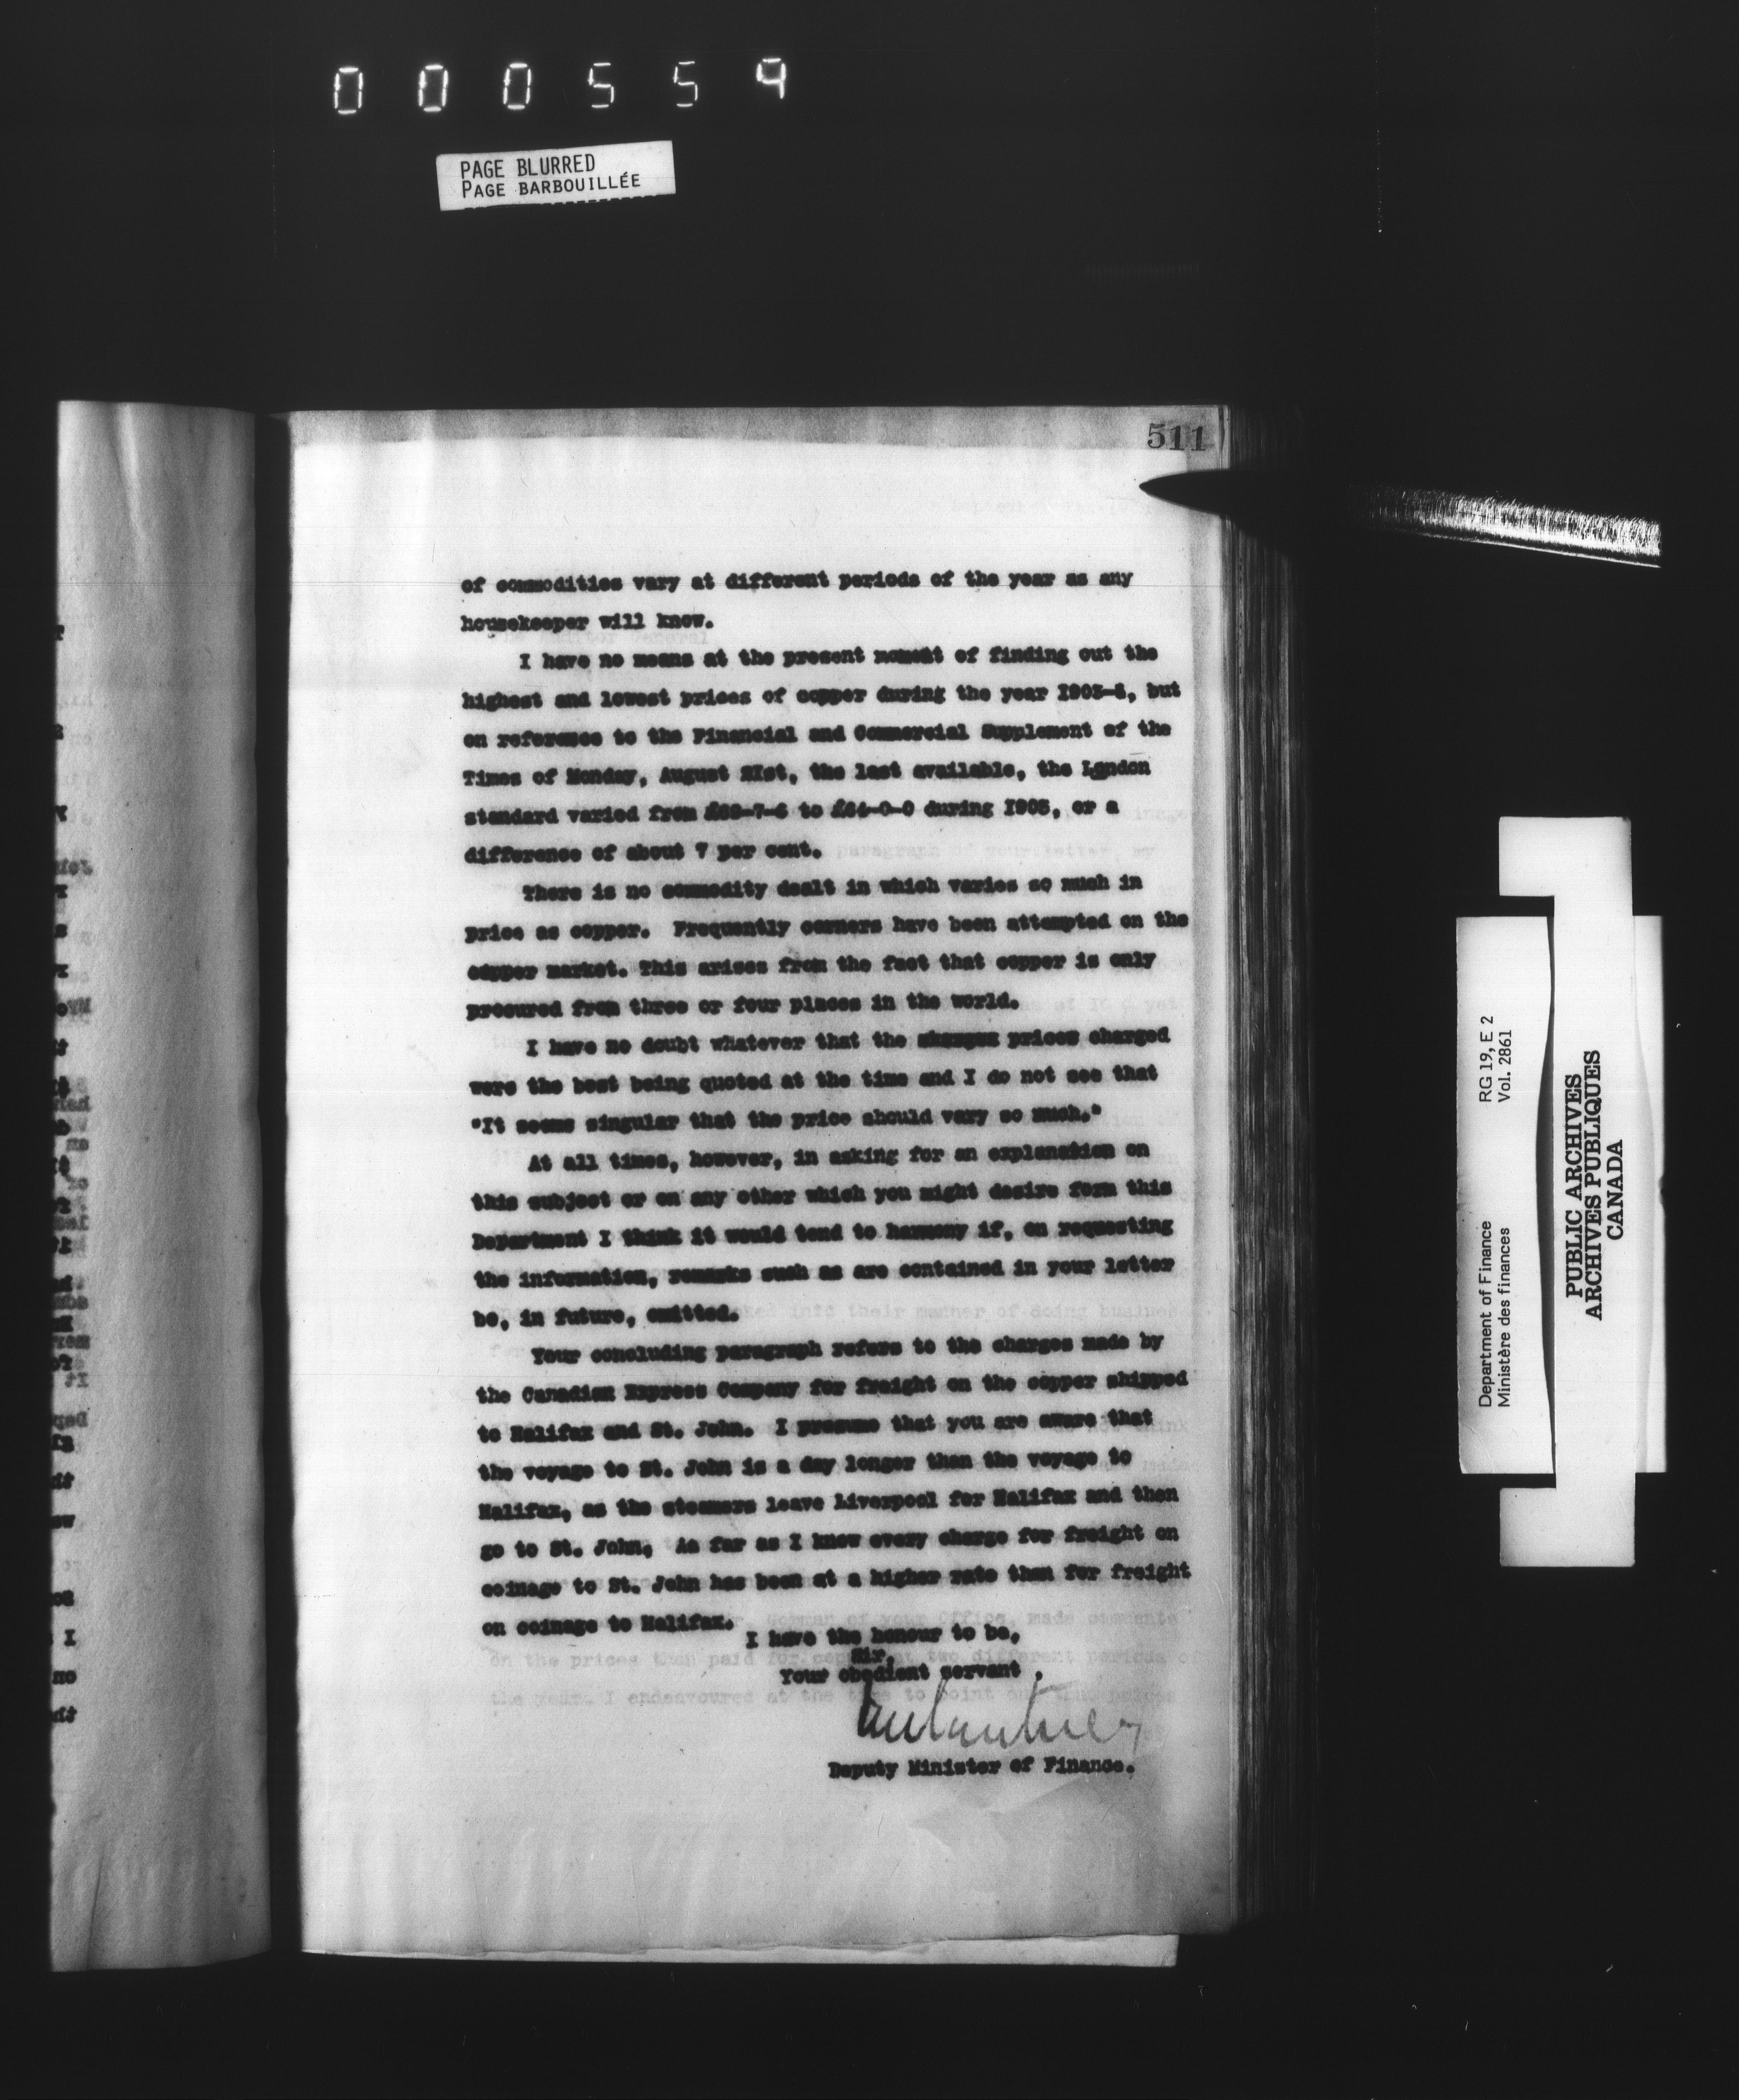 000559
PAGE BLURRED
PAGE BARBOUILLÉE
511
of commodities vary at different periods of the year as any
housekeeper will know.
I have no means at the present moment of finding out the
highest and lowest prices of copper during the year but
on reference to the Financial and Commercial Supplement of the
Times of Monday, August 2Ist, the last available, the London
standard varied from to £64-0-0 during or a
difference of about 7 per cent.
There is no commodity dealt in which varies so much in
price as copper. Frequently corners have been attempted on the
copper market. This arises from the fact that copper is only
procured from three or four places in the world.
I have no doubt whatever that the prices charged
were the best being quoted at the time and I do not see that
"It seems singular that the price should vary so much."
At all times, however, in asking for an explanation on
this subject or on any other which you might desire form this
Department I think it would tend to harmony if, on requesting
the information, remarks such as are contained in your letter
be, in future, omitted.
Your concluding paragraph refers to the charges made by
the Canadian Express Company for freight on the copper shipped
to Halifax and St. John. I presume that you are aware that
the voyage to St. John is a day longer than the voyage to
Halifax, as the steamers leave Liverpool for Halifax and then
go to St. John. As far as I know every charge for freight on
coinage to St. John has been at a higher rate than for freight
on coinage to Halifax.
I have the honour to be,
Sir,
Your obedient servant,
Deputy Minister of Finance.
Department of Finance
Ministère des finances
RG 19, E 2
Vol. 2861
PUBLIC ARCHIVES
ARCHIVES PUBLIQUES
CANADA